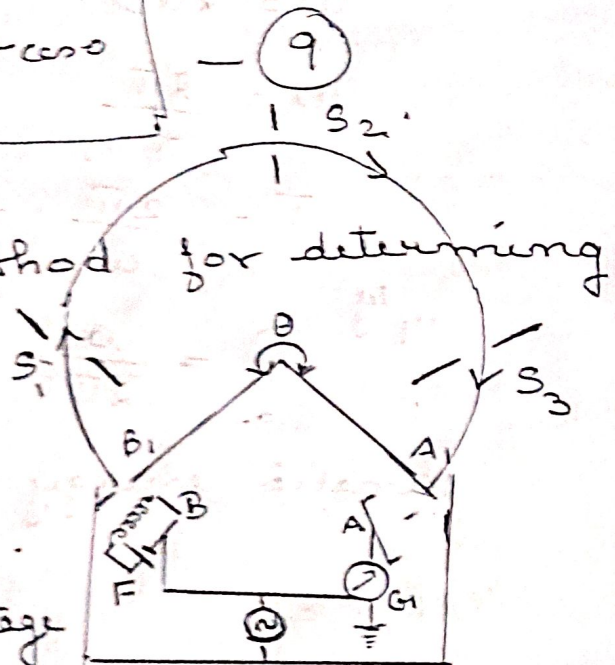 -caso
— 9
S2
thod for determining
θ
S1
S3
B1
A1
B
A
F
G1
~
age